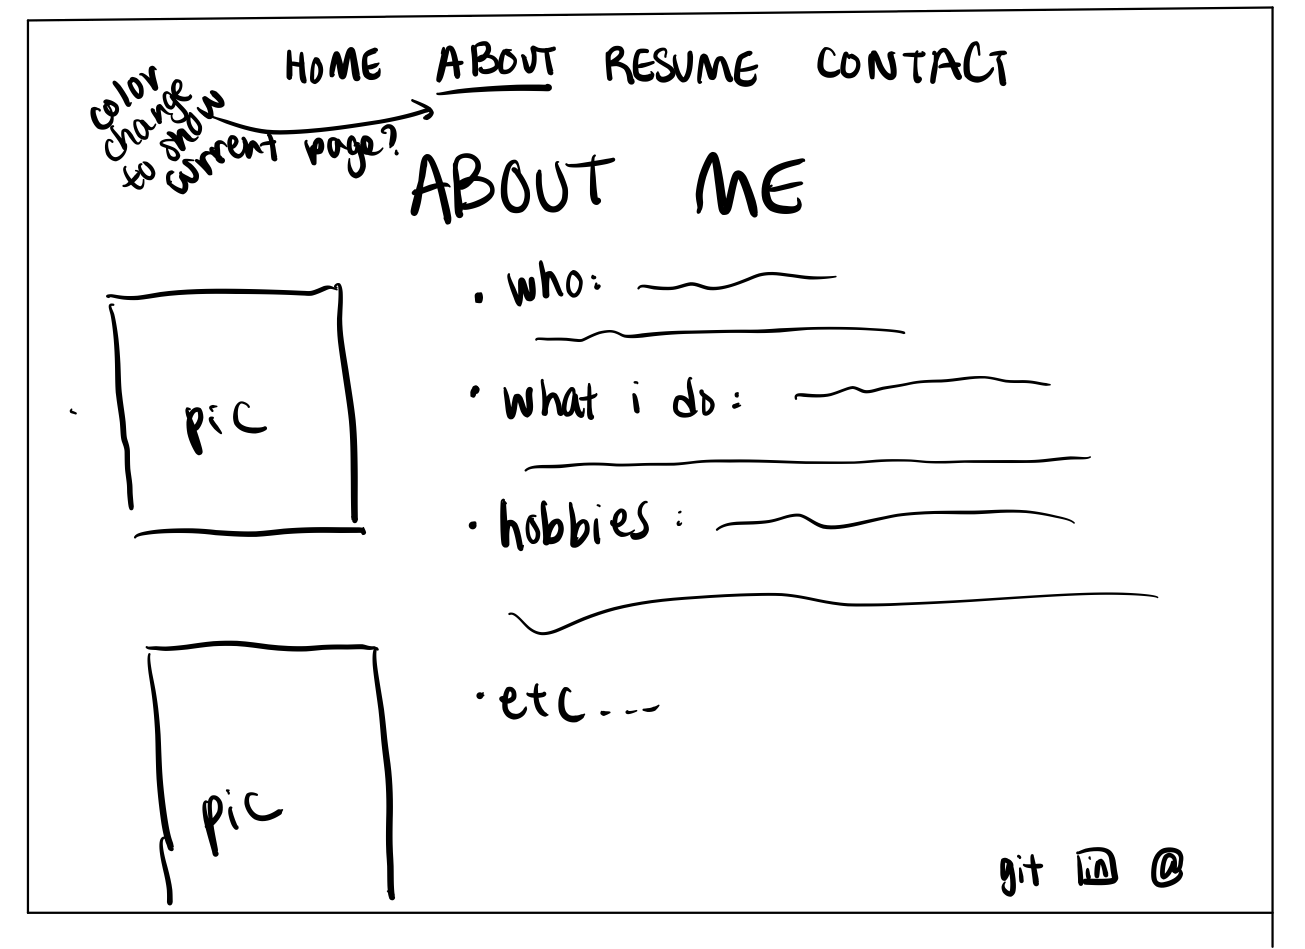 HOME ABOUT RESUME CONTACT
color
change
to show
current page?
ABOUT ME
• who:
• what i do:
pic
• hobbies:
• etc...
pic
git in @